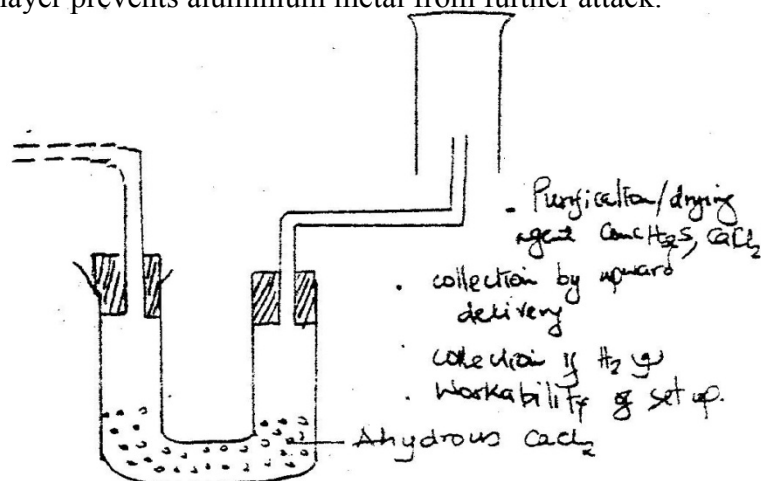 layer prevents aluminium metal from further attack.
. Purification/drying
agent Conc H2S, CaCl2
. collection by upward
delivery
collection of H2 g
. Workability of set up.
Ahydrous CaCl2